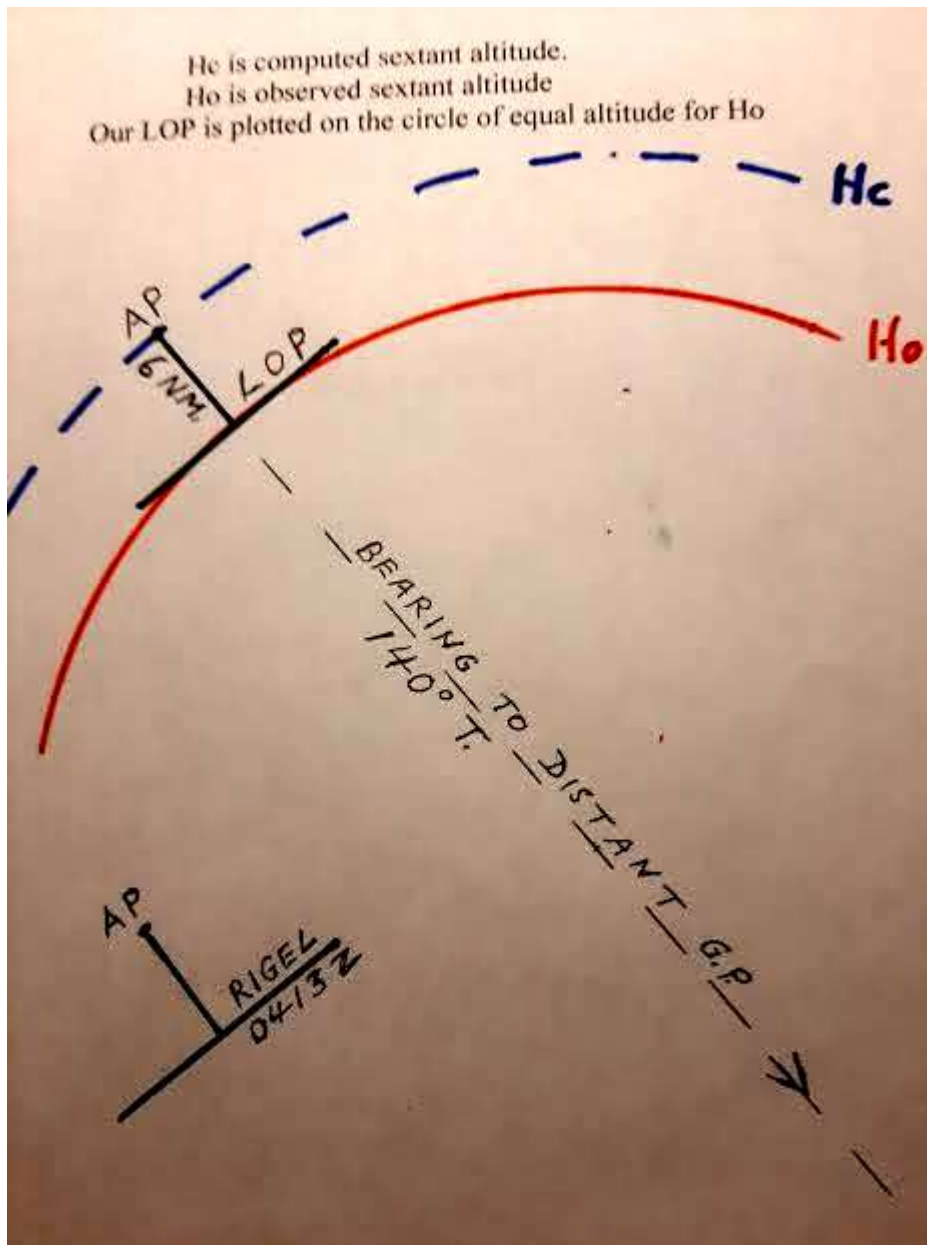 Hc is computed sextant altitude.
Ho is observed sextant altitude
Our LOP is plotted on the circle of equal altitude for Ho
Hc
Ho
AP
6 NM.
LOP
BEARING TO DISTANT G.P.
140° T.
AP
RIGEL
0413Z